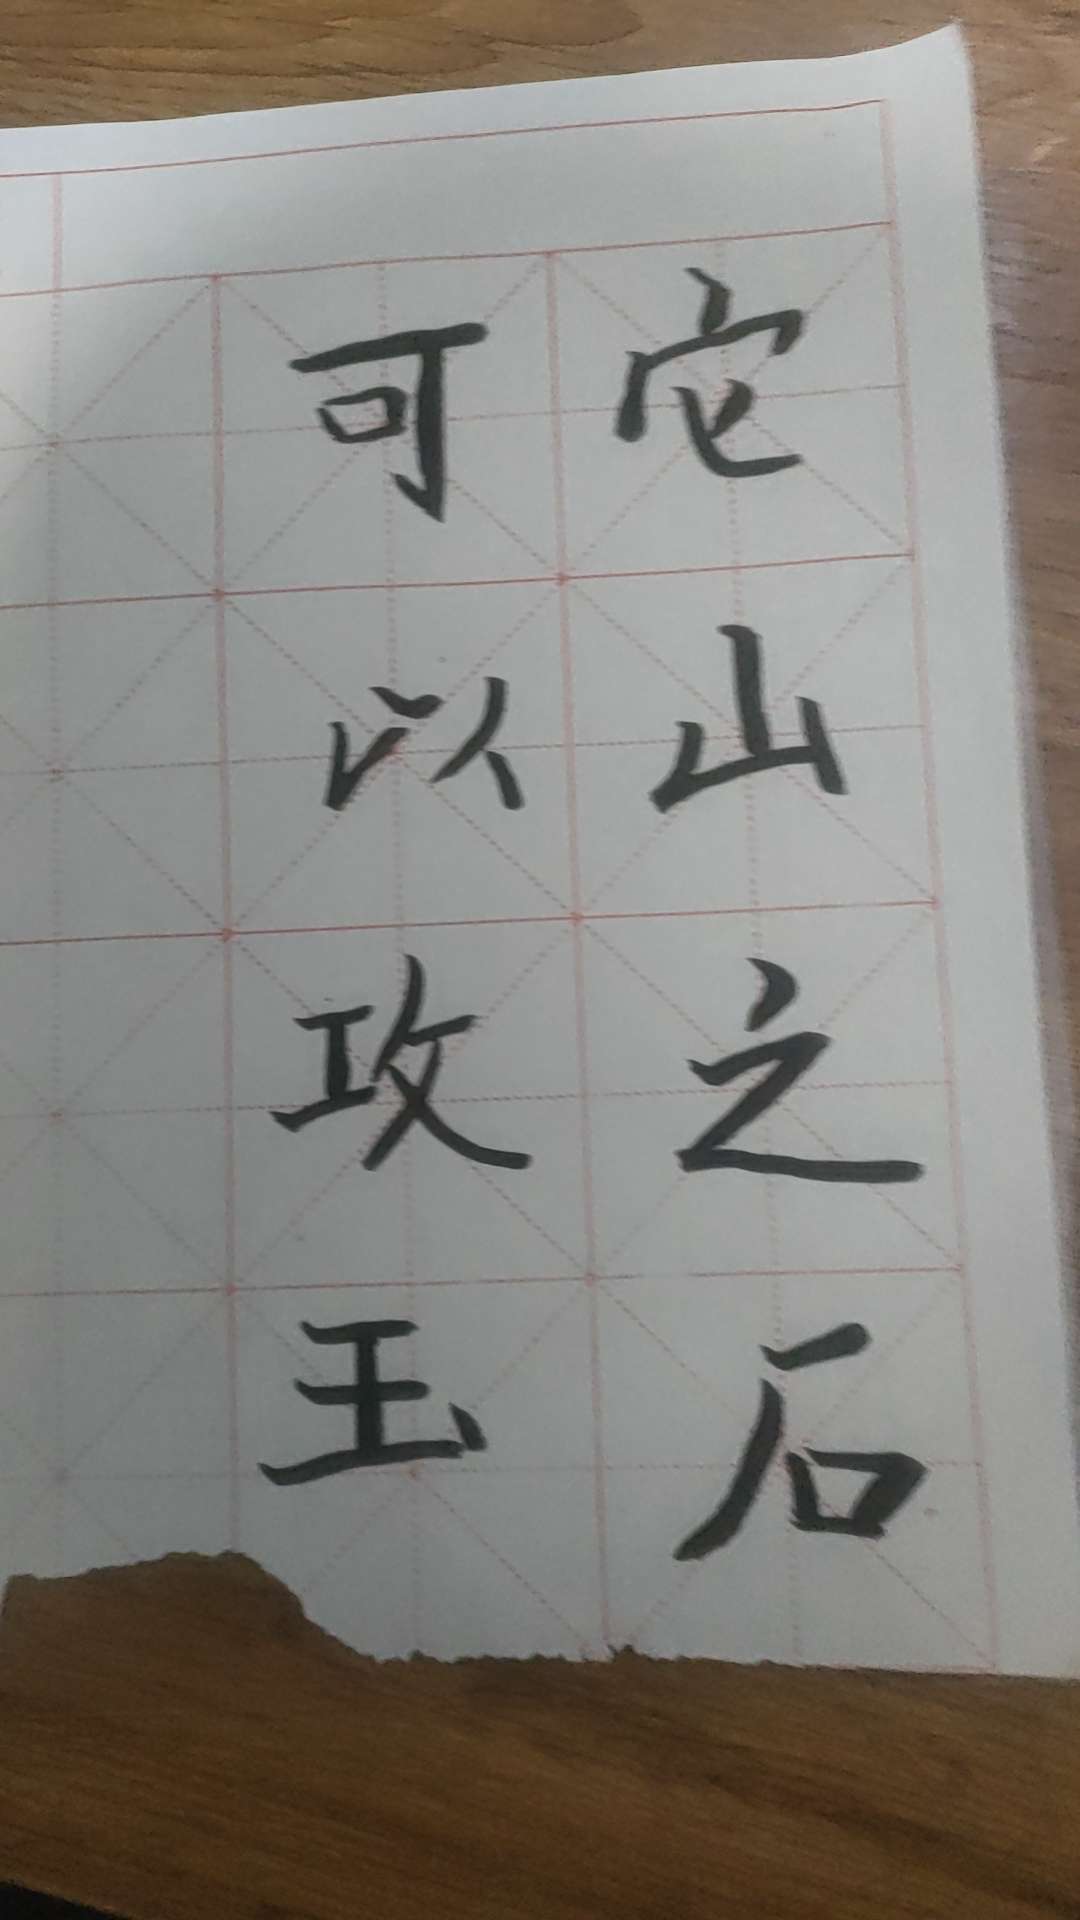 它山之石
可以攻玉